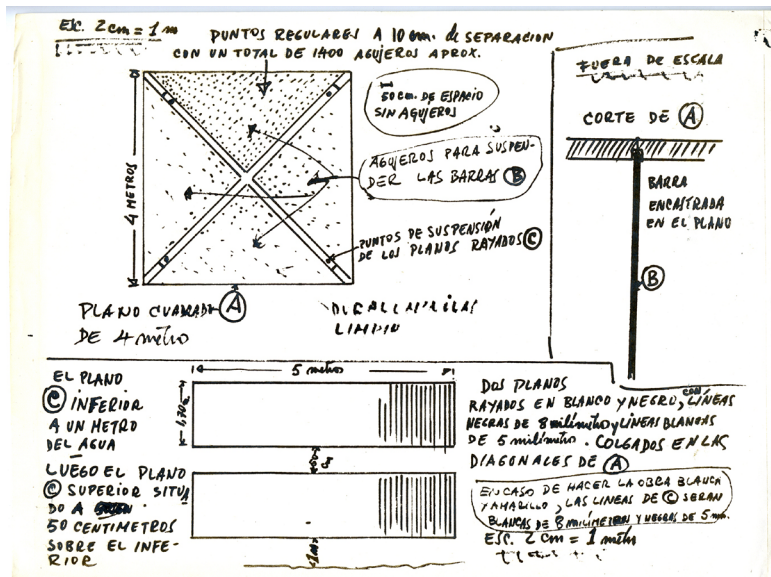 ESC. 2 cm = 1 m
PUNTOS REGULARES A 10 cm. de SEPARACION
CON UN TOTAL DE 1400 AGUJEROS APROX.
50 cm. DE ESPACIO
SIN AGUJEROS
AGUJEROS PARA SUSPEN-
DER LAS BARRAS B
PUNTOS DE SUSPENSIÓN
DE LOS PLANOS RAYADOS C
4 METROS
PLANO CUADRADO A
DE 4 metro
LIMPIO
FUERA DE ESCALA
CORTE DE A
BARRA
ENCASTRADA
EN EL PLANO
B
EL PLANO
C INFERIOR
A UN METRO
DEL AGUA
LUEGO EL PLANO
C SUPERIOR SITUA
DO A
50 CENTIMETROS
SOBRE EL INFE-
RIOR
5 metros
1,20 m
50 cm
1 m
DOS PLANOS
RAYADOS EN BLANCO Y NEGRO, CON LÍNEAS
NEGRAS DE 8 milímetro y LINEAS BLANCAS
DE 5 milimetro. COLGADOS EN LAS
DIAGONALES DE A
EN CASO DE HACER LA OBRA BLANCA
Y AMARILLO, LAS LINEAS DE C SERAN
BLANCAS DE 8 MILIMETRO Y NEGRAS DE 5 mm.
ESC. 2 cm = 1 metro